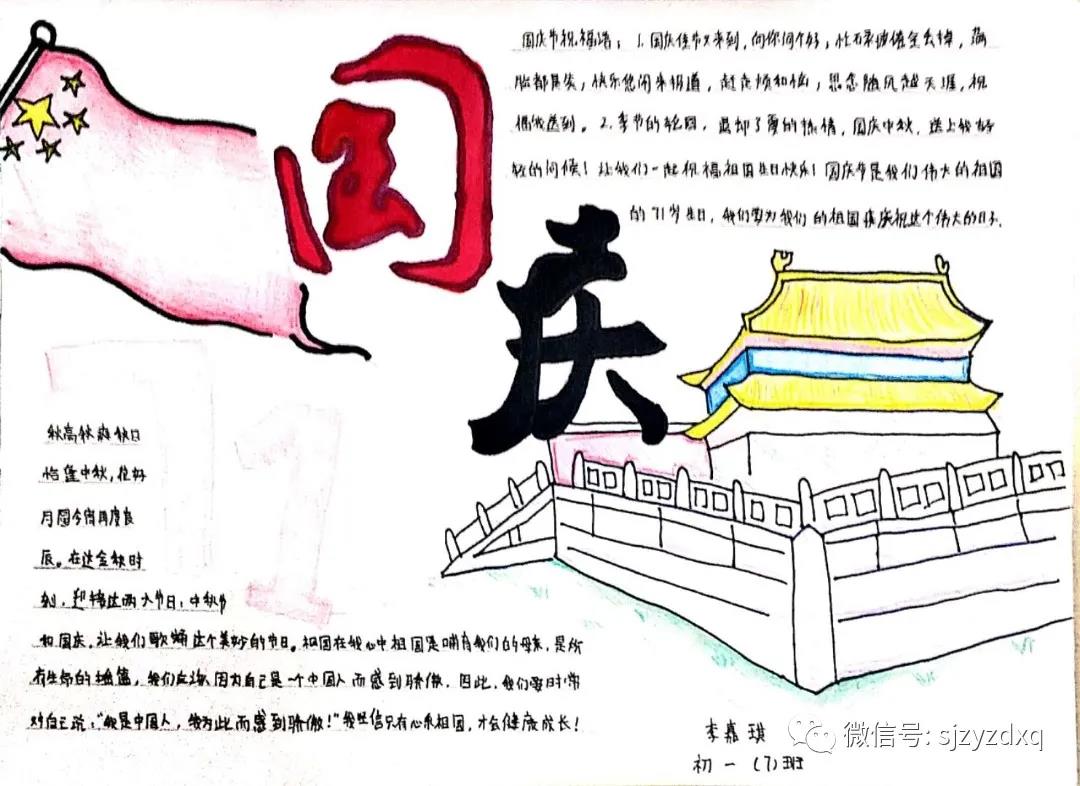 国庆
国庆节祝福语：1.国庆佳节又来到，向你问个好，
脸都是笑；快乐悠闲来报道，赶走烦和恼；思念随风越天涯，祝
福我送到。2.季节的轮回，退却了夏的热情，国庆中秋，送上我好
轻的问候！让我们一起祝福祖国生日快乐！国庆节是我们伟大的祖国
的71岁生日，我们要为我们的祖国庆祝这个伟大的日子。
11
秋高秋爽秋日
恰逢中秋，佳好
月圆今宵再度良
辰。在这金秋时
刻，迎接这两大节日：中秋节
和国庆，让我们歌颂这个美妙的节日。祖国在我心中祖国是哺育我们的母亲，是所
有生命的摇篮，我们应该因为自己是一个中国人而感到骄傲。因此，我们要时常
对自己说：“我是中国人，我为此而感到骄傲！”我坚信只有心系祖国，才会健康成长！
李嘉琪
初一（7）班
微信号: sjzyzdxq